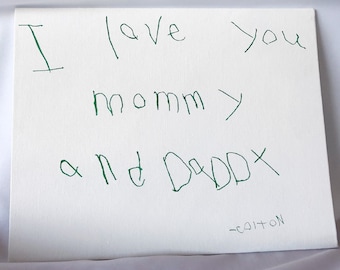 I love you
mommy
and DaDDY
-colToN